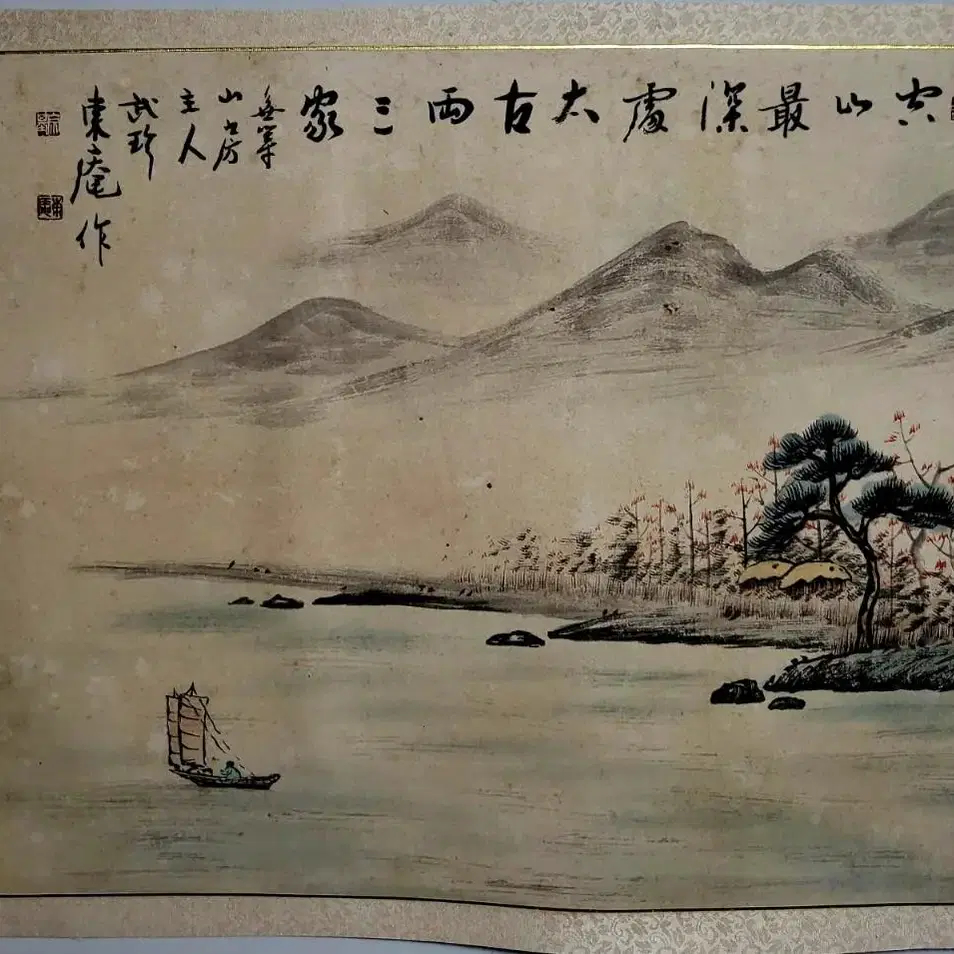 空山最深處太古兩三家
無等
山房
主人
武珍
東庵作